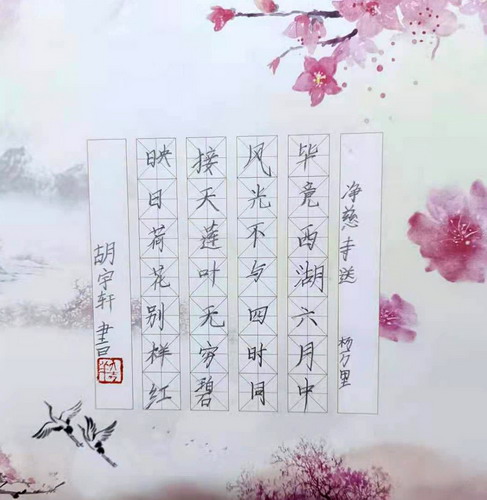 净慈寺送 杨万里
毕竟西湖六月中
风光不与四时同
接天莲叶无穷碧
映日荷花别样红
胡宇轩 書